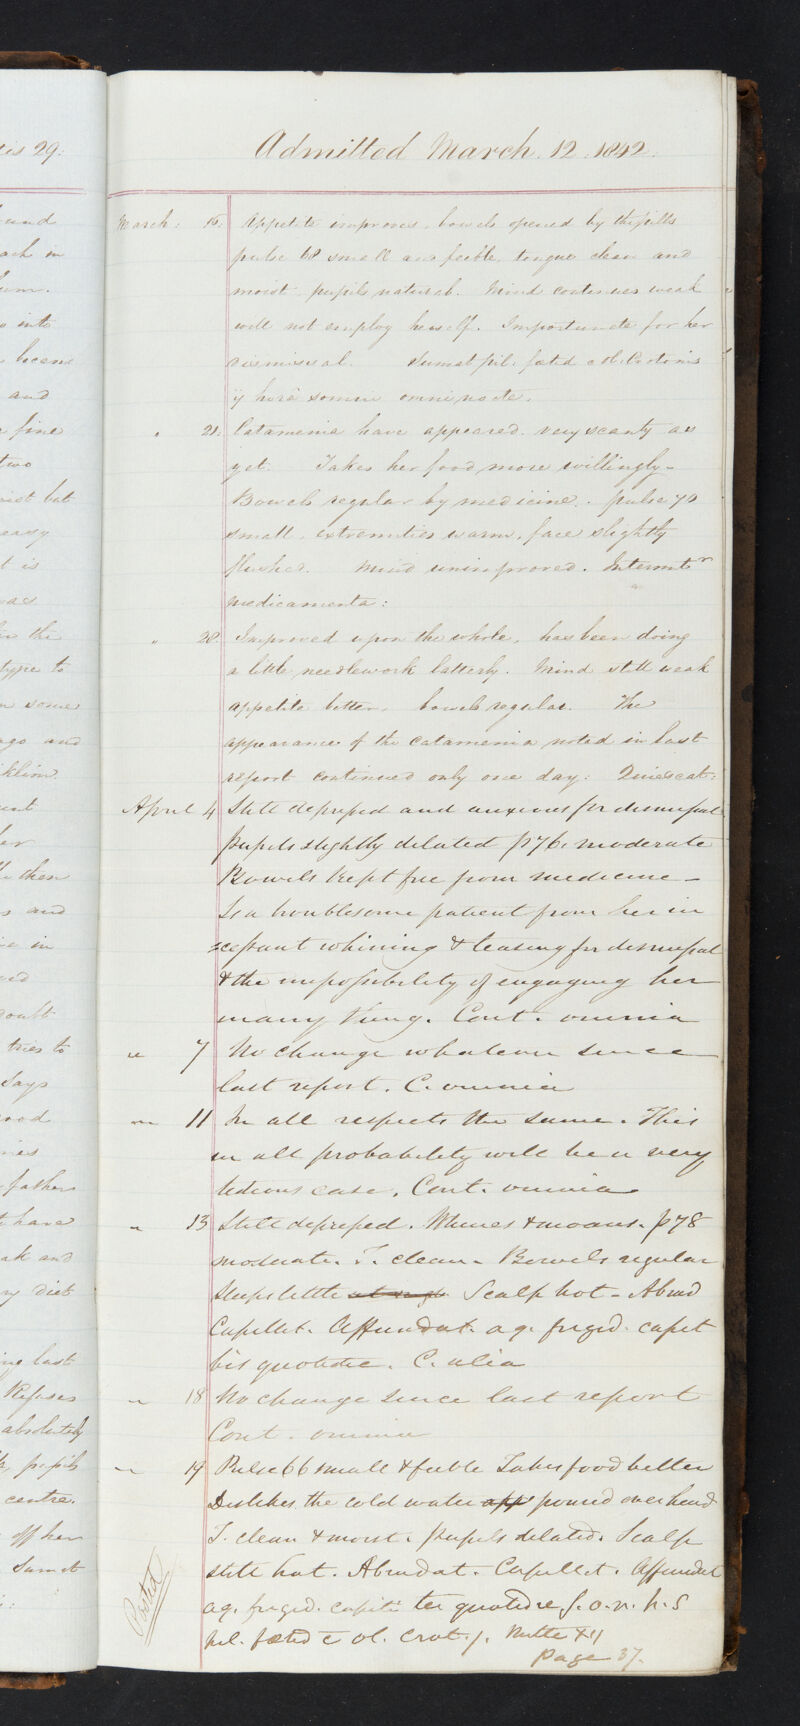 Admitted March. 12. 1842.
March: 15: Appetite improves, bowels opened by the pills
pulse 68 small and feeble, tongue clean and
moist, pupils natural. Mind continues weak
will not employ herself. Importunate for her
dismissal. Sumat pil. fœtid c Ol. Crotonis
ij horâ somni omni nocte.
" 21: Catamenia have appeared. very scanty as
yet. Takes her food more willingly.
Bowels regular by medicine. pulse 70
small, extremities warm, face slightly
flushed. Mind unimproved. Intermitr
medicamenta:
" 28. Improved upon the whole, has been doing
a little needlework latterly. Mind still weak
appetite better, bowels regular. The
appearance of the catamenia noted in last
report continued only one day: Quiescat:
April 4 Still depressed and anxious for dismissal
Pupils slightly dilated p 76. moderate
Bowels kept free from medicine –
Is a troublesome patient from her in
cessant whining & teasing for dismissal
& the impossibility of engaging her
in any thing. Cont. omnia
" 7 No change whatever since
last report. C. omnia
" 11 In all respects the same. This
in all probability will be a very
tedious case. Cont. omnia
" 13 Still depressed. Whines & moans. p 78
moderate. T. clean. Bowels regular
Sleeps little Scalp hot – Abrad
Capillit. Affundat. aq. frigid. capit
bis quotidie. C. alia
" 18 No change since last report
Cont. omnia
" 19 Pulse 66 small & feeble Takes food better
Dislikes the cold water app poured over head
T. clean & moist. Pupils dilated. Scalp
still hot. Abradat. Capillit. Affundat
aq. frigid. capiti ter quotidie S. o. n. h. s
pil. fœtid c ol. crot. j. Mitte xij
Page 37.
Posted
tis 29:
and
ach in
into
became
and
fine
two
but
easy
is
was
the
type to
some
ago and
her
then
and
in
doubt
tries to
Says
good
father
have
and
diet
last
Refuses
absolutely
pupils
centre.
off her
Sumat